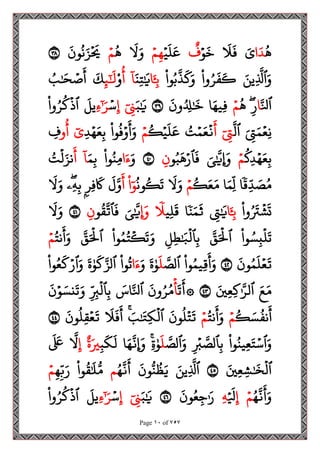 هُدَايَ فَلَا خَوْفٌ عَلَيْهِمْ وَلَا هُمْ يَحْزَنُونَ ٣٨
وَٱلَّذِينَ كَفَرُوا۟ وَكَذَّبُوا۟ بِـَٔايَٰتِنَآ أُو۟لَٰٓئِكَ أَصْحَٰبُ
ٱلنَّارِ هُمْ فِيهَا خَٰلِدُونَ ٣٩ يَٰبَنِىٓ إِسْرَٰٓءِيلَ ٱذْكُرُوا۟
نِعْمَتِىَ ٱلَّتِىٓ أَنْعَمْتُ عَلَيْكُمْ وَأَوْفُوا۟ بِعَهْدِىٓ أُوفِ
بِعَهْدِكُمْ وَإِيَّٰىَ فَٱرْهَبُونِ ٤٠ وَءَامِنُوا۟ بِمَآ أَنزَلْتُ
مُصَدِّقًا لِّمَا مَعَكُمْ وَلَا تَكُونُوٓا۟ أَوَّلَ كَافِرٍ بِهِۦ وَلَا
تَشْتَرُوا۟ بِـَٔايَٰتِى ثَمَنًا قَلِيلًا وَإِيَّٰىَ فَٱتَّقُونِ ٤١ وَلَا
تَلْبِسُوا۟ ٱلْحَقَّ بِٱلْبَٰطِلِ وَتَكْتُمُوا۟ ٱلْحَقَّ وَأَنتُمْ
تَعْلَمُونَ ٤٢ وَأَقِيمُوا۟ ٱلصَّلَوٰةَ وَءَاتُوا۟ ٱلزَّكَوٰةَ وَٱرْكَعُوا۟
مَعَ ٱلرَّٰكِعِينَ ٤٣ ۞ أَتَأْمُرُونَ ٱلنَّاسَ بِٱلْبِرِّ وَتَنسَوْنَ
أَنفُسَكُمْ وَأَنتُمْ تَتْلُونَ ٱلْكِتَٰبَ أَفَلَا تَعْقِلُونَ ٤٤
وَٱسْتَعِينُوا۟ بِٱلصَّبْرِ وَٱلصَّلَوٰةِ وَإِنَّهَا لَكَبِيرَةٌ إِلَّا عَلَى
ٱلْخَٰشِعِينَ ٤٥ ٱلَّذِينَ يَظُنُّونَ أَنَّهُم مُّلَٰقُوا۟ رَبِّهِمْ
وَأَنَّهُمْ إِلَيْهِ رَٰجِعُونَ ٤٦ يَٰبَنِىٓ إِسْرَٰٓءِيلَ ٱذْكُرُوا۟
Page ١٠ of ٧٥٧